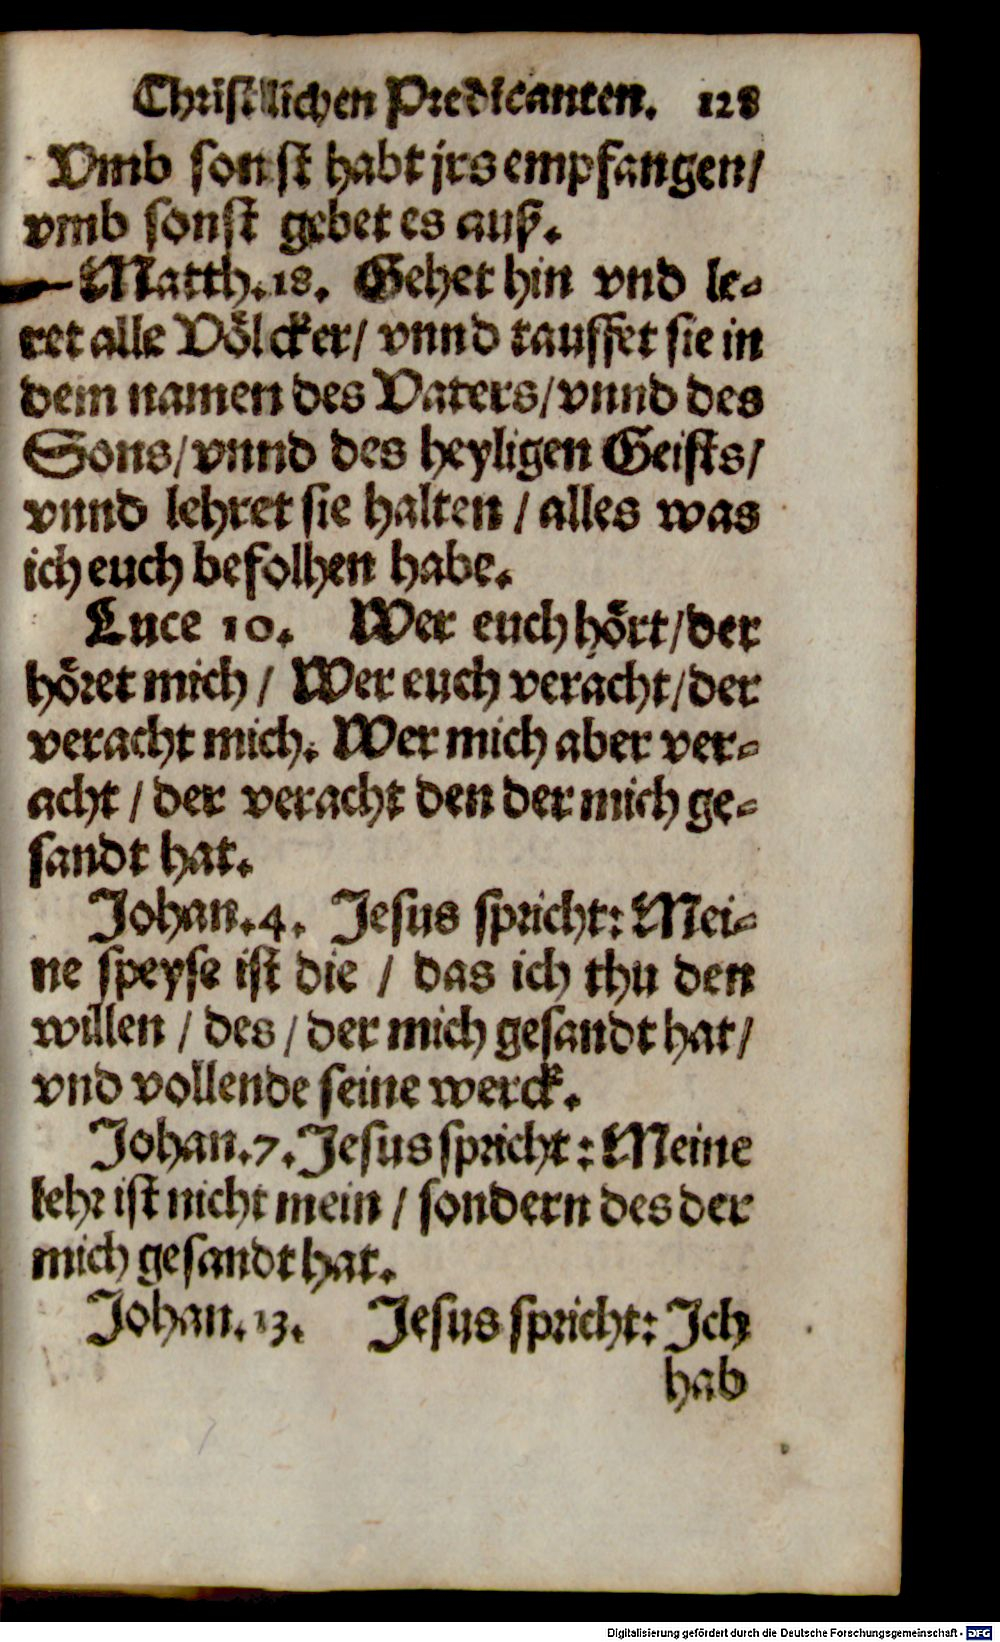 Christlichen Predicanten. 128
Vmb sonst habt jrs empfangen/
vmb sonst gebet es auß.
Matth. 18. Gehet hin vnd le-
ret alle Völcker/ vnnd tauffet sie in
dem namen des Vaters/ vnnd des
Sons/ vnnd des heyligen Geists/
vnnd lehret sie halten / alles was
ich euch befolhen habe.
Luce 10. Wer euch hört/ der
höret mich / Wer euch veracht/ der
veracht mich. Wer mich aber ver-
acht / der veracht den der mich ge-
sandt hat.
Johan. 4. Jesus spricht: Mei-
ne speyse ist die / das ich thu den
willen / des / der mich gesandt hat/
vnd vollende seine werck.
Johan. 7. Jesus spricht: Meine
lehr ist nicht mein / sondern des der
mich gesandt hat.
Johan. 13. Jesus spricht: Ich
hab
Digitalisierung gefördert durch die Deutsche Forschungsgemeinschaft - DFG